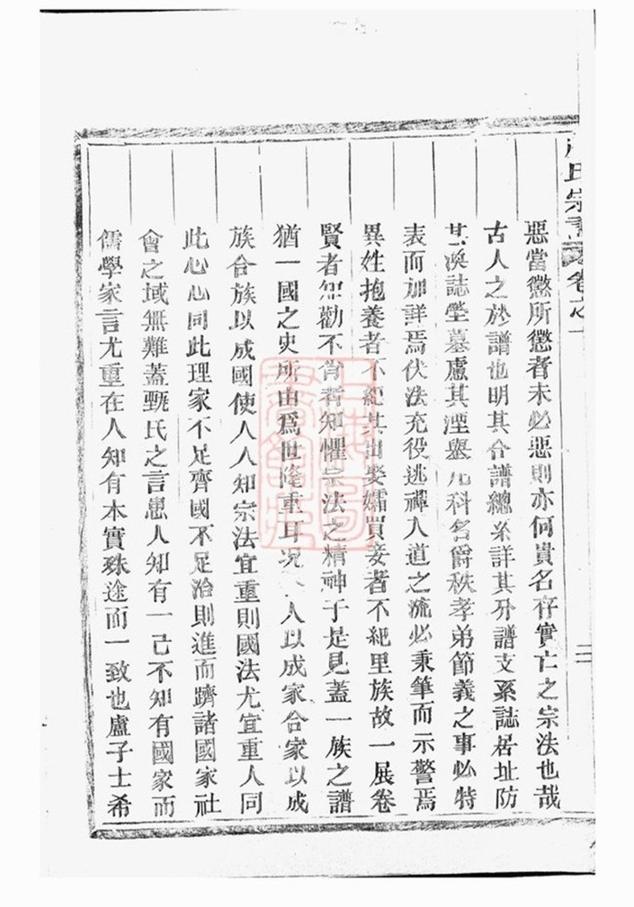 氏宗譜 卷之一
惡當懲所懲者未必惡則亦何貴名存實亡之宗法也哉
古人之於譜也明其合譜總系詳其分譜支系誌居址防
其渙誌塋墓慮其湮舉凡科名爵秩孝弟節義之事必特
表而加詳焉伏法充役逃禪入道之流必秉筆而示警焉
異姓抱養者不紀其出娶孀買妾者不紀里族故一展卷
賢者知勸不肖者知懼宗法之精神于是見蓋一族之譜
猶一國之史所由爲世隆重耳况人以成家合家以成
族合族以成國使人人知宗法宜重則國法尤宜重人同
此心心同此理家不足齊國不足治則進而躋諸國家社
會之域無難蓋甄氏之言患人知有一己不知有國家而
儒學家言尤重在人知有本實殊途而一致也盧子士希
二